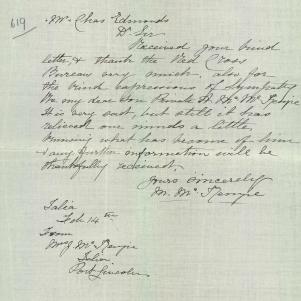 619
Mr Chas Edmonds
Dr Sir
Received your kind
letter & thank the Red Cross
Bureau very much, also for
the kind expressions of Sympathy
in my dear Son Private A. Mc Kenzie
It is very sad, but still it has
relieved our minds a little,
knowing what has become of him
& any further information will be
thankfully received,
Yours sincerely
M. Mc Kenzie
Talia
Feb 14th
From
Mrs Mc Kenzie
Talia
Port Lincoln